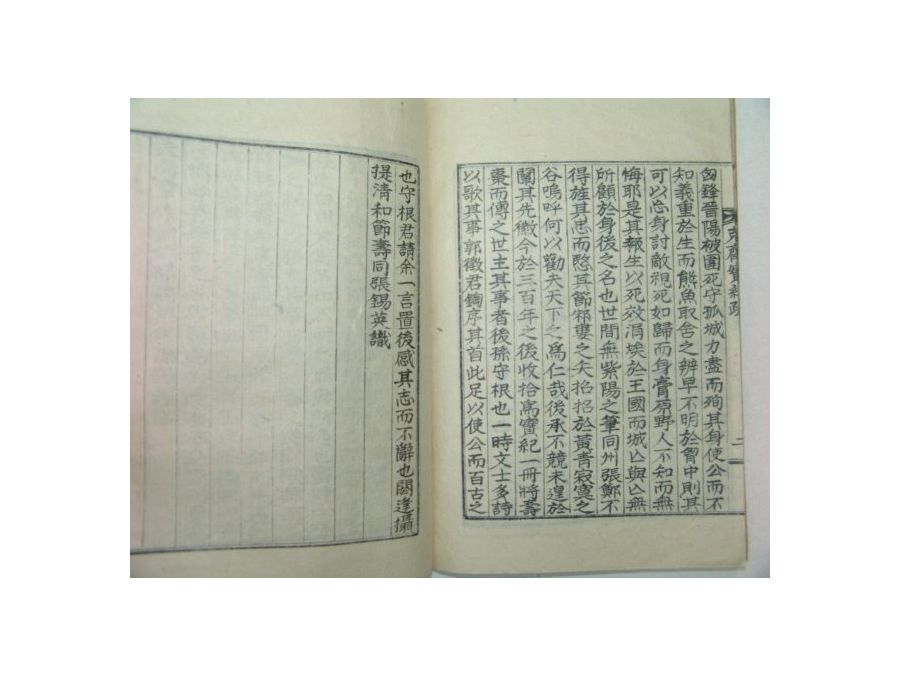 匈鋒晉陽被圍死守孤城力盡而殉其身使公而不
知義重於生而熊魚取舍之辨早不明於胷中則其
可以忘身討敵視死如歸而身膏原野人不知而無
悔耶是其報生以死效涓埃於王國而城亡與亡無
所顧於身後之名也世間無紫陽之筆同州張鄭不
得旌其忠而愍其節
之夫招招於黃青寂寞之
谷嗚呼何以勸夫天下之爲仁哉後承不競未遑於
闡其先徽今於三百年之後收拾爲實紀一冊將壽
棗而傳之世主其事者後孫守根也一時文士多詩
以歌其事郭徵君鋾序其首此足以使公而百古之
實紀跋
二
也守根君請余一言置後感其志而不辭也閼逢攝
提淸和節壽同張錫英識